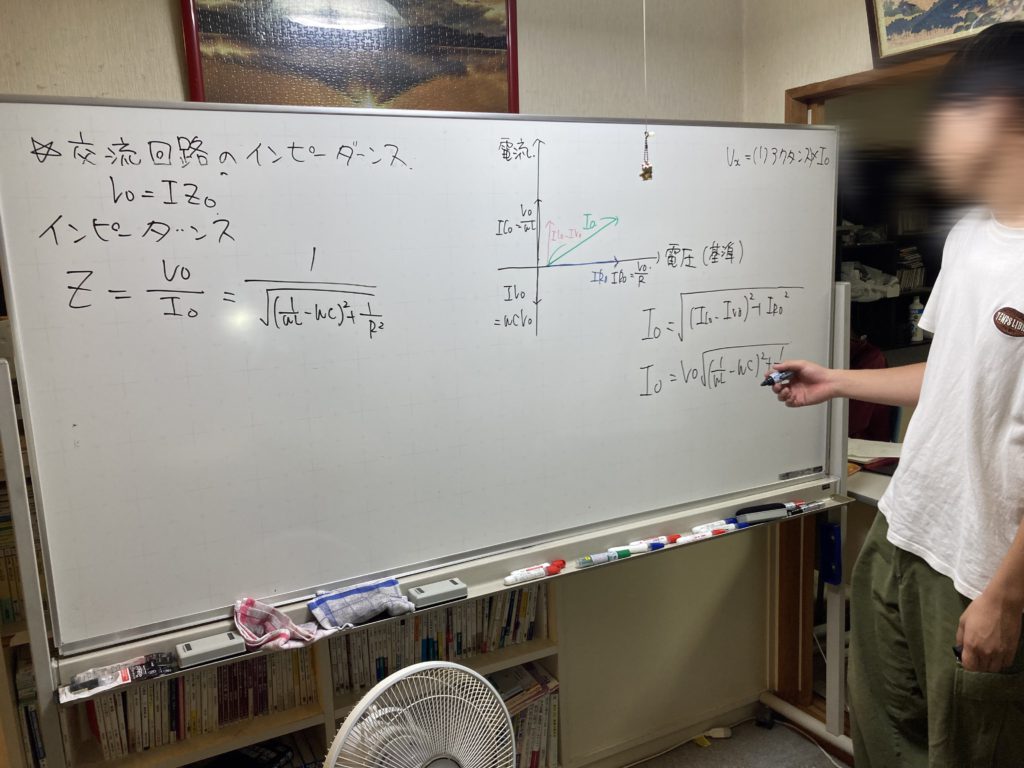 ☆交流回路のインピーダーンス
V0=IZ0
インピーダーンス
Z = V0/I0 = 1/√((1/ωL-ωC)²+1/R²)
電流
IL0=V0/ωL
IL0-IV0
I0
→電圧(基準)
IR0 IR0=V0/R
IV0
=ωCV0
Vx=(リアクタンス)×I0
I0=√((IL0-IV0)²+IR0²)
I0=V0√((1/ωL-ωC)²+1